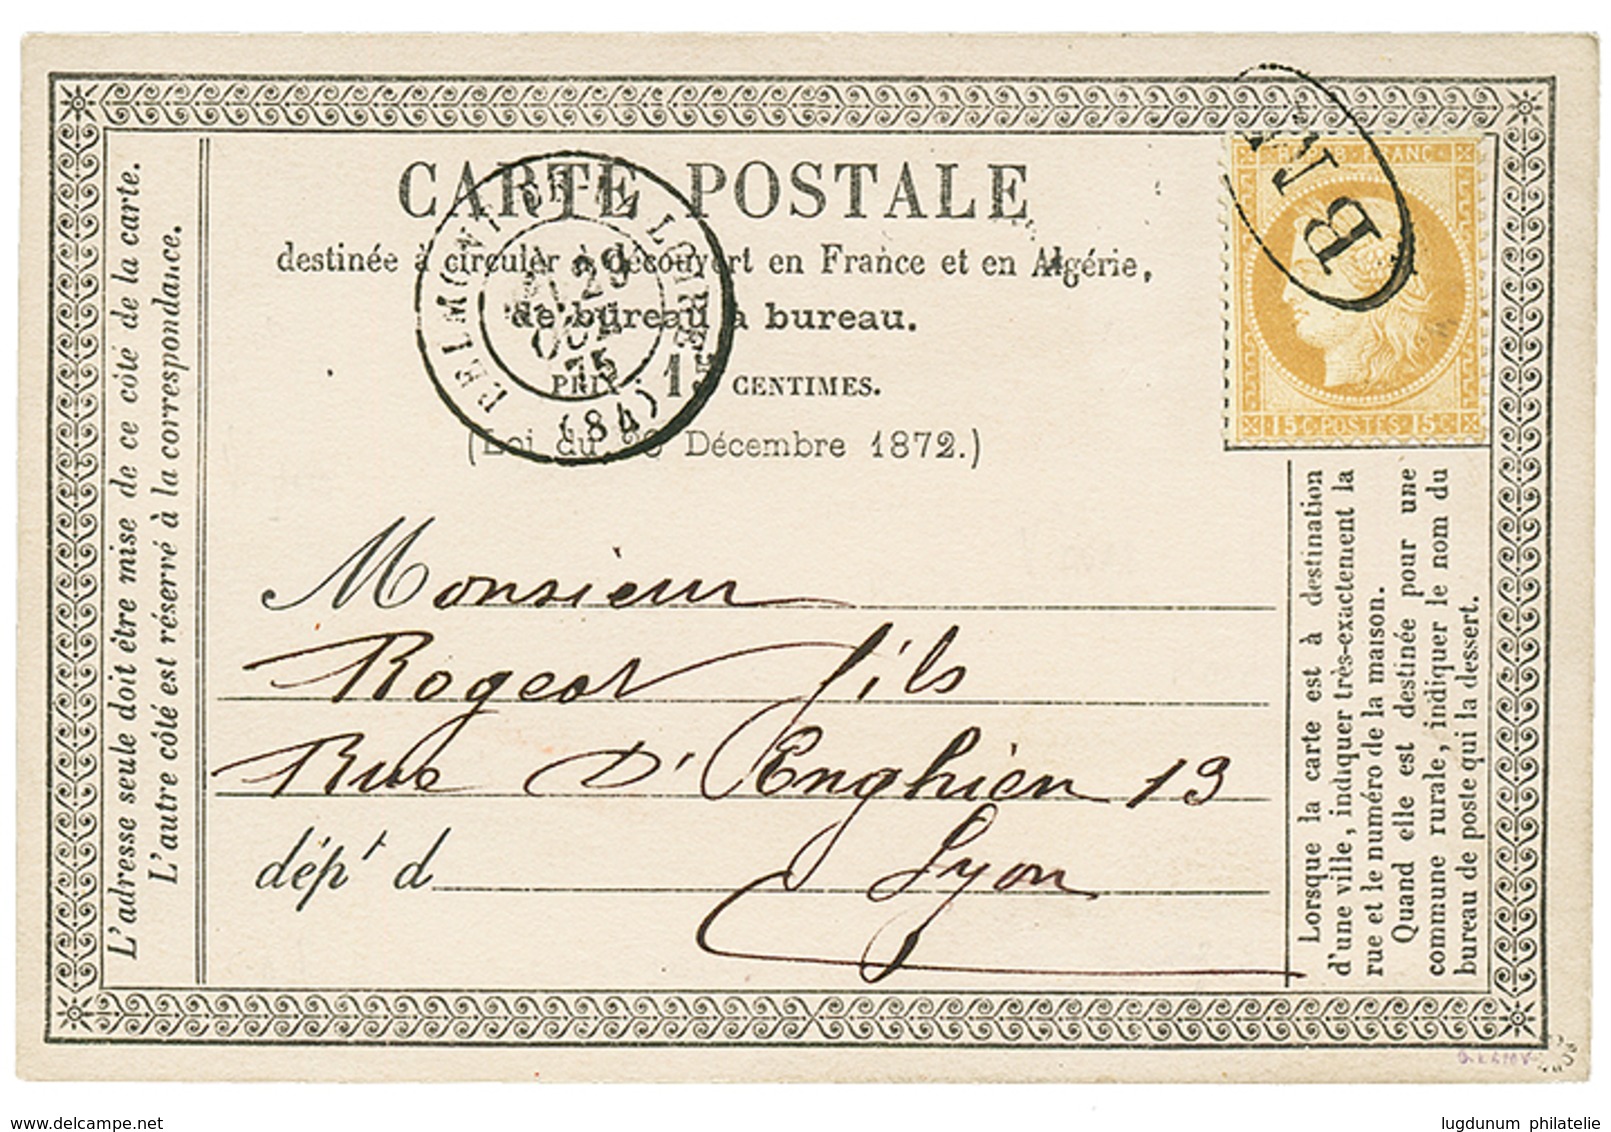 CARTE POSTALE
destinée à circuler à découvert en France et en Algérie,
de bureau à bureau.
PRIX: 15 CENTIMES.
(Loi du 20 Décembre 1872.)
BELMONT-DE-LA LOIRE
29
OCT
75
(84)
RÉPUB·FRANC·
15 C·POSTES·15 C·
B
L'adresse seule doit être mise de ce côté de la carte.
L'autre côté est réservé à la correspondance.
Monsieur
Rogeat fils
Rue D'Enghien 13
dépt d Lyon
Lorsque la carte est à destination
d'une ville, indiquer très-exactement la
rue et le numéro de la maison.
Quand elle est destinée pour une
commune rurale, indiquer le nom du
bureau de poste qui la dessert.
www.delcampe.net
lugdunum philatelie